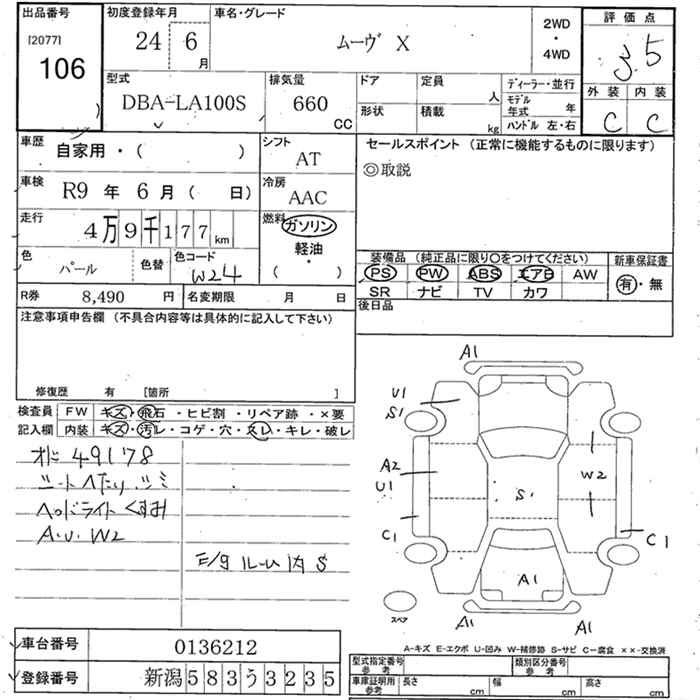 出品番号
[2077]
106
初度登録年月
24 6
月
車名・グレード
ムーヴ X
2WD
・
4WD
評価点
3.5
外装 内装
C C
型式
DBA-LA100S
排気量
660
CC
ドア 定員
人
形状 積載
kg
ディーラー・並行
モデル年式 年
ハンドル 左・右
車歴
自家用・( )
シフト
AT
セールスポイント (正常に機能するものに限ります)
◎取説
車検
R9 年 6 月 ( 日)
冷房
AAC
走行
4万9千177km
燃料
ガソリン
軽油
( ・ )
色
パール
色替
色コード
W24
装備品 (純正品に限り○をつけてください)
PS PW ABS エアB AW
SR ナビ TV カワ
新車保証書
有・無
R券 8,490 円
名変期限 月 日
後日品
注意事項申告欄 (不具合内容等は具体的に記入して下さい)
修復歴 有 [箇所 ]
検査員 FW キズ・飛石・ヒビ割・リペア跡・×要
記入欄 内装 キズ・汚レ・コゲ・穴・スレ・キレ・破レ
オド 49178
シートへたり、シミ
ヘッドライトくすみ
A.U.W2
ルーム内 S
A1
U1
S1
A2
U1
W2
S1
C1
C1
A1
A1
A1
スペア
A-キズ E-エクボ U-凹み W-補修跡 S-サビ C-腐食 ××-交換済
車台番号 0136212
登録番号 新潟583う3235
型式指定番号
参考
類別区分番号
参考
車庫証明用
参考
長さ cm 幅 cm 高さ cm